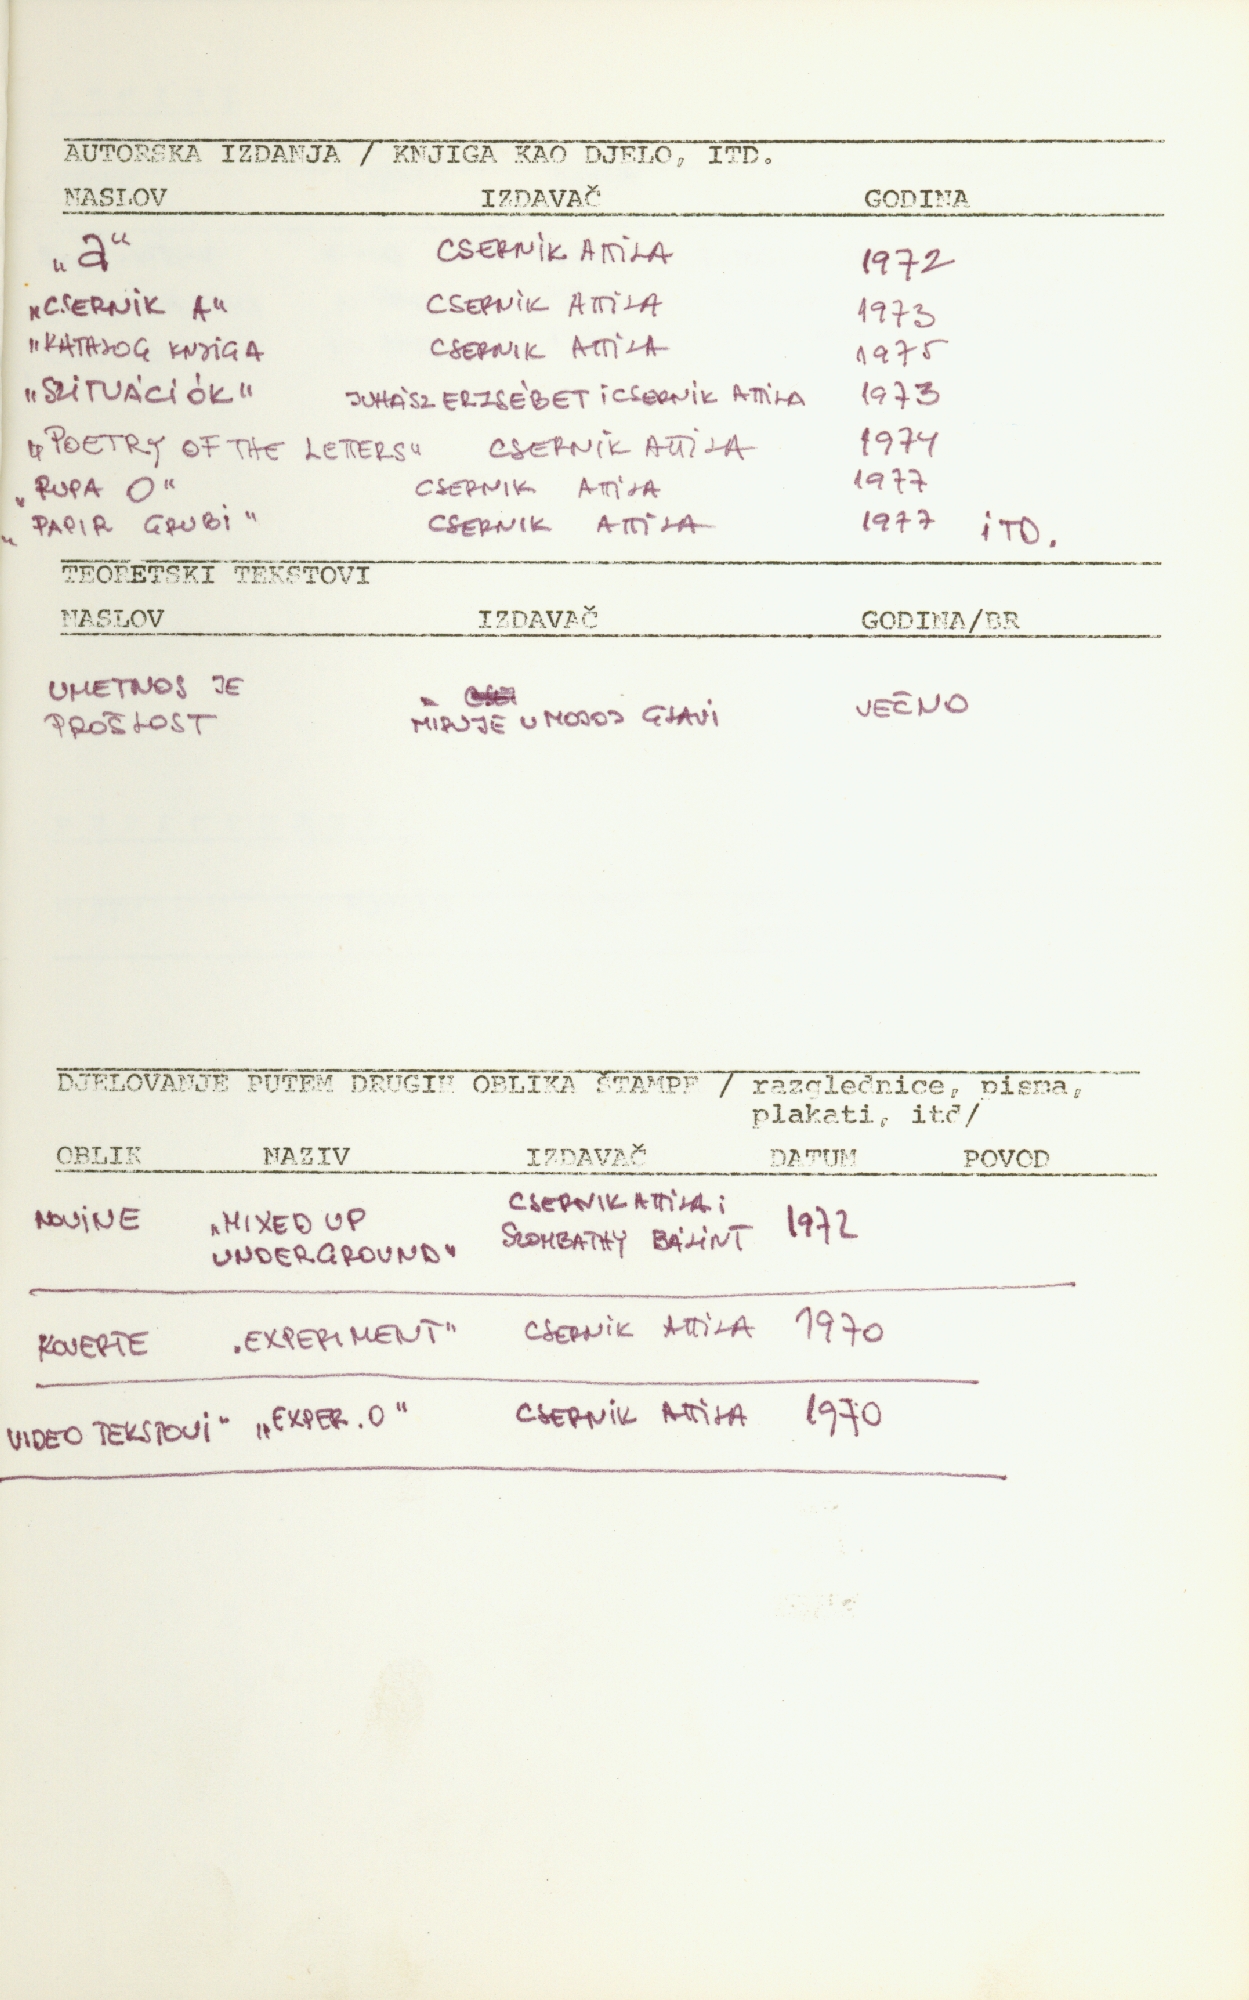 AUTORSKA IZDANJA / KNJIGA KAO DJELO, ITD.
NASLOV IZDAVAČ GODINA
„a“ CSERNiK ATTiLA 1972
„CSERNiK A“ CSERNiK ATTiLA 1973
"KATALOG KNJiGA CSERNIK ATTiLA 1975
"SZiTUÁCiÓK" JUHÁSZ ERZSÉBET i CSERNiK ATTiLA 1973
„POETRY OF THE LETTERS“ CSERNiK ATTiLA 1974
„RUPA O“ CSERNIK ATTiLA 1977
„PAPIR GRUBi“ CSERNIK ATTiLA 1977 iTD.
TEORETSKI TEKSTOVI
NASLOV IZDAVAČ GODINA/BR
UMETNOS JE
PROŠLOST MIRUJE U MOJOJ GLAVi VEČNO
DJELOVANJE PUTEM DRUGIH OBLIKA ŠTAMPE / razglednice, pisma,
plakati, itd/
OBLIK NAZIV IZDAVAČ DATUM POVOD
NOViNE „MIXED UP CSERNIK ATTiLA i 1972
UNDERGROUND“ SZOMBATHY BÁLINT
KOVERTE „EXPERIMENT“ CSERNiK ATTiLA 1970
VIDEO TEKSTOVi“ „EXPER.O“ CSERNiK ATTiLA 1970